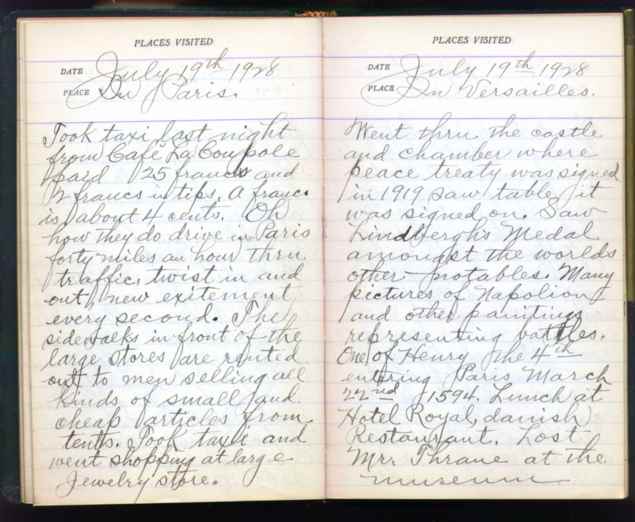 PLACES VISITED
DATE July 19th 1928
PLACE In Paris.
Took taxi last night
from Cafe La Coupole
paid 25 francs and
2 francs in tips. A franc
is about 4 cents. Oh
how they do drive in Paris
forty miles an hour thru
traffic, twist in and
out, new exitement
every second. The
sidewalks in front of the
large stores are rented
out to men selling all
kinds of small and
cheap articles from
tents. Took taxi and
went shopping at large
Jewelry store.
PLACES VISITED
DATE July 19th 1928
PLACE In Versailles.
Went thru the castle
and chamber where
peace treaty was signed
in 1919 saw table it
was signed on. Saw
Lindbergh's Medal
amongst the worlds
other notables. Many
pictures of Napolion
and other paintings
representing battles.
One of Henry the 4th
entering Paris March
22nd 1594. Lunch at
Hotel Royal, danish
Restaurant. Lost
Mrs. Thrane at the
museum